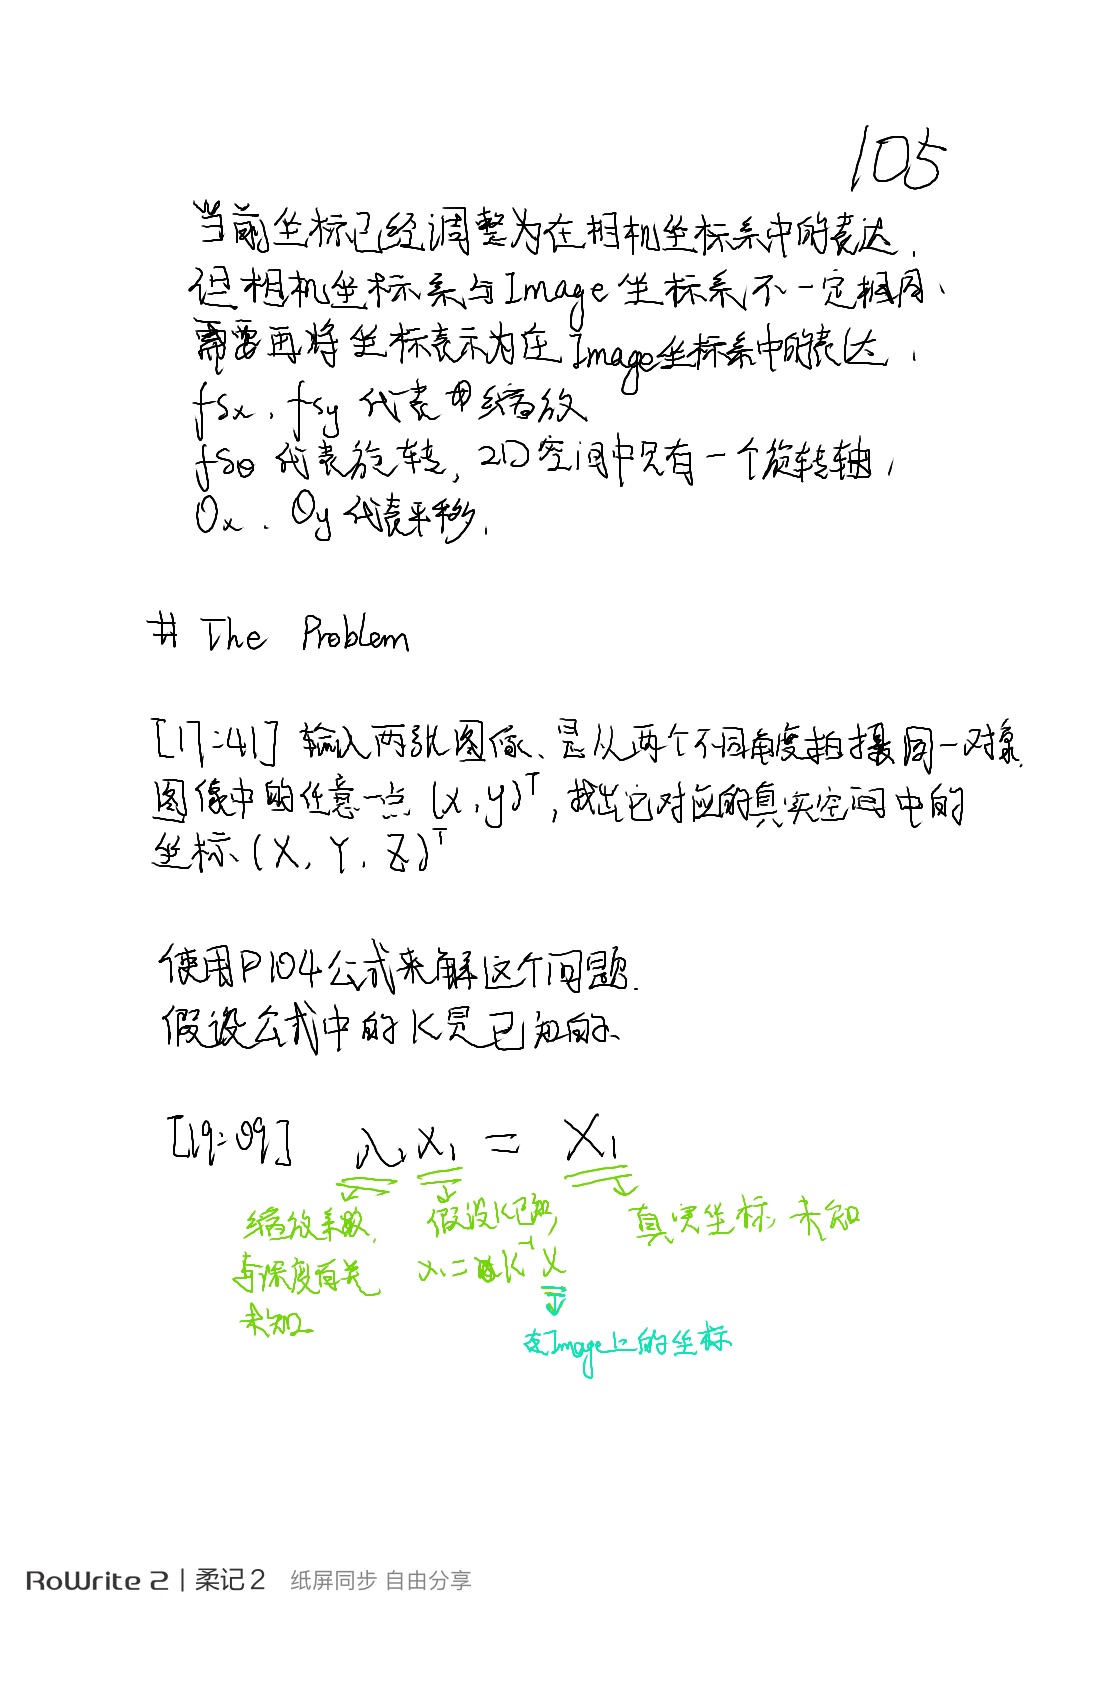 105
当前坐标已经调整为在相机坐标系中的表达,
但相机坐标系与Image坐标系不一定相同、
需要再将坐标表示为在Image坐标系中的表达,
fsx, fsy 代表缩放
fsθ 代表旋转, 2D空间中只有一个旋转轴,
Ox、Oy代表平移.
# The Problem
[17:41] 输入两张图像、是从两个不同角度拍摄同一对象.
图像中的任意一点 (x,y)ᵀ, 找出它对应的真实空间中的
坐标、(X, Y, Z)ᵀ
使用P104公式来解这个问题.
假设公式中的K是已知的、
[19:09] λ₁x₁ = X₁
缩放系数, 假设K已知, 真实坐标, 未知
与深度有关 x₁ = K⁻¹X
未知
在Image上的坐标